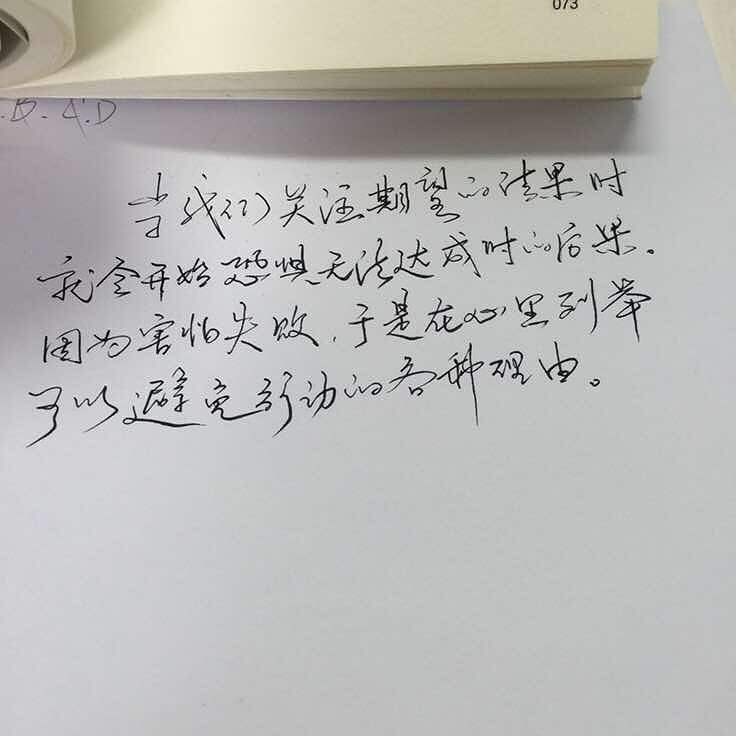 073
.B.A.D
当我们关注期望的结果时
就会开始恐惧无法达成时的后果.
因为害怕失败,于是在心里列举
可以避免行动的各种理由。